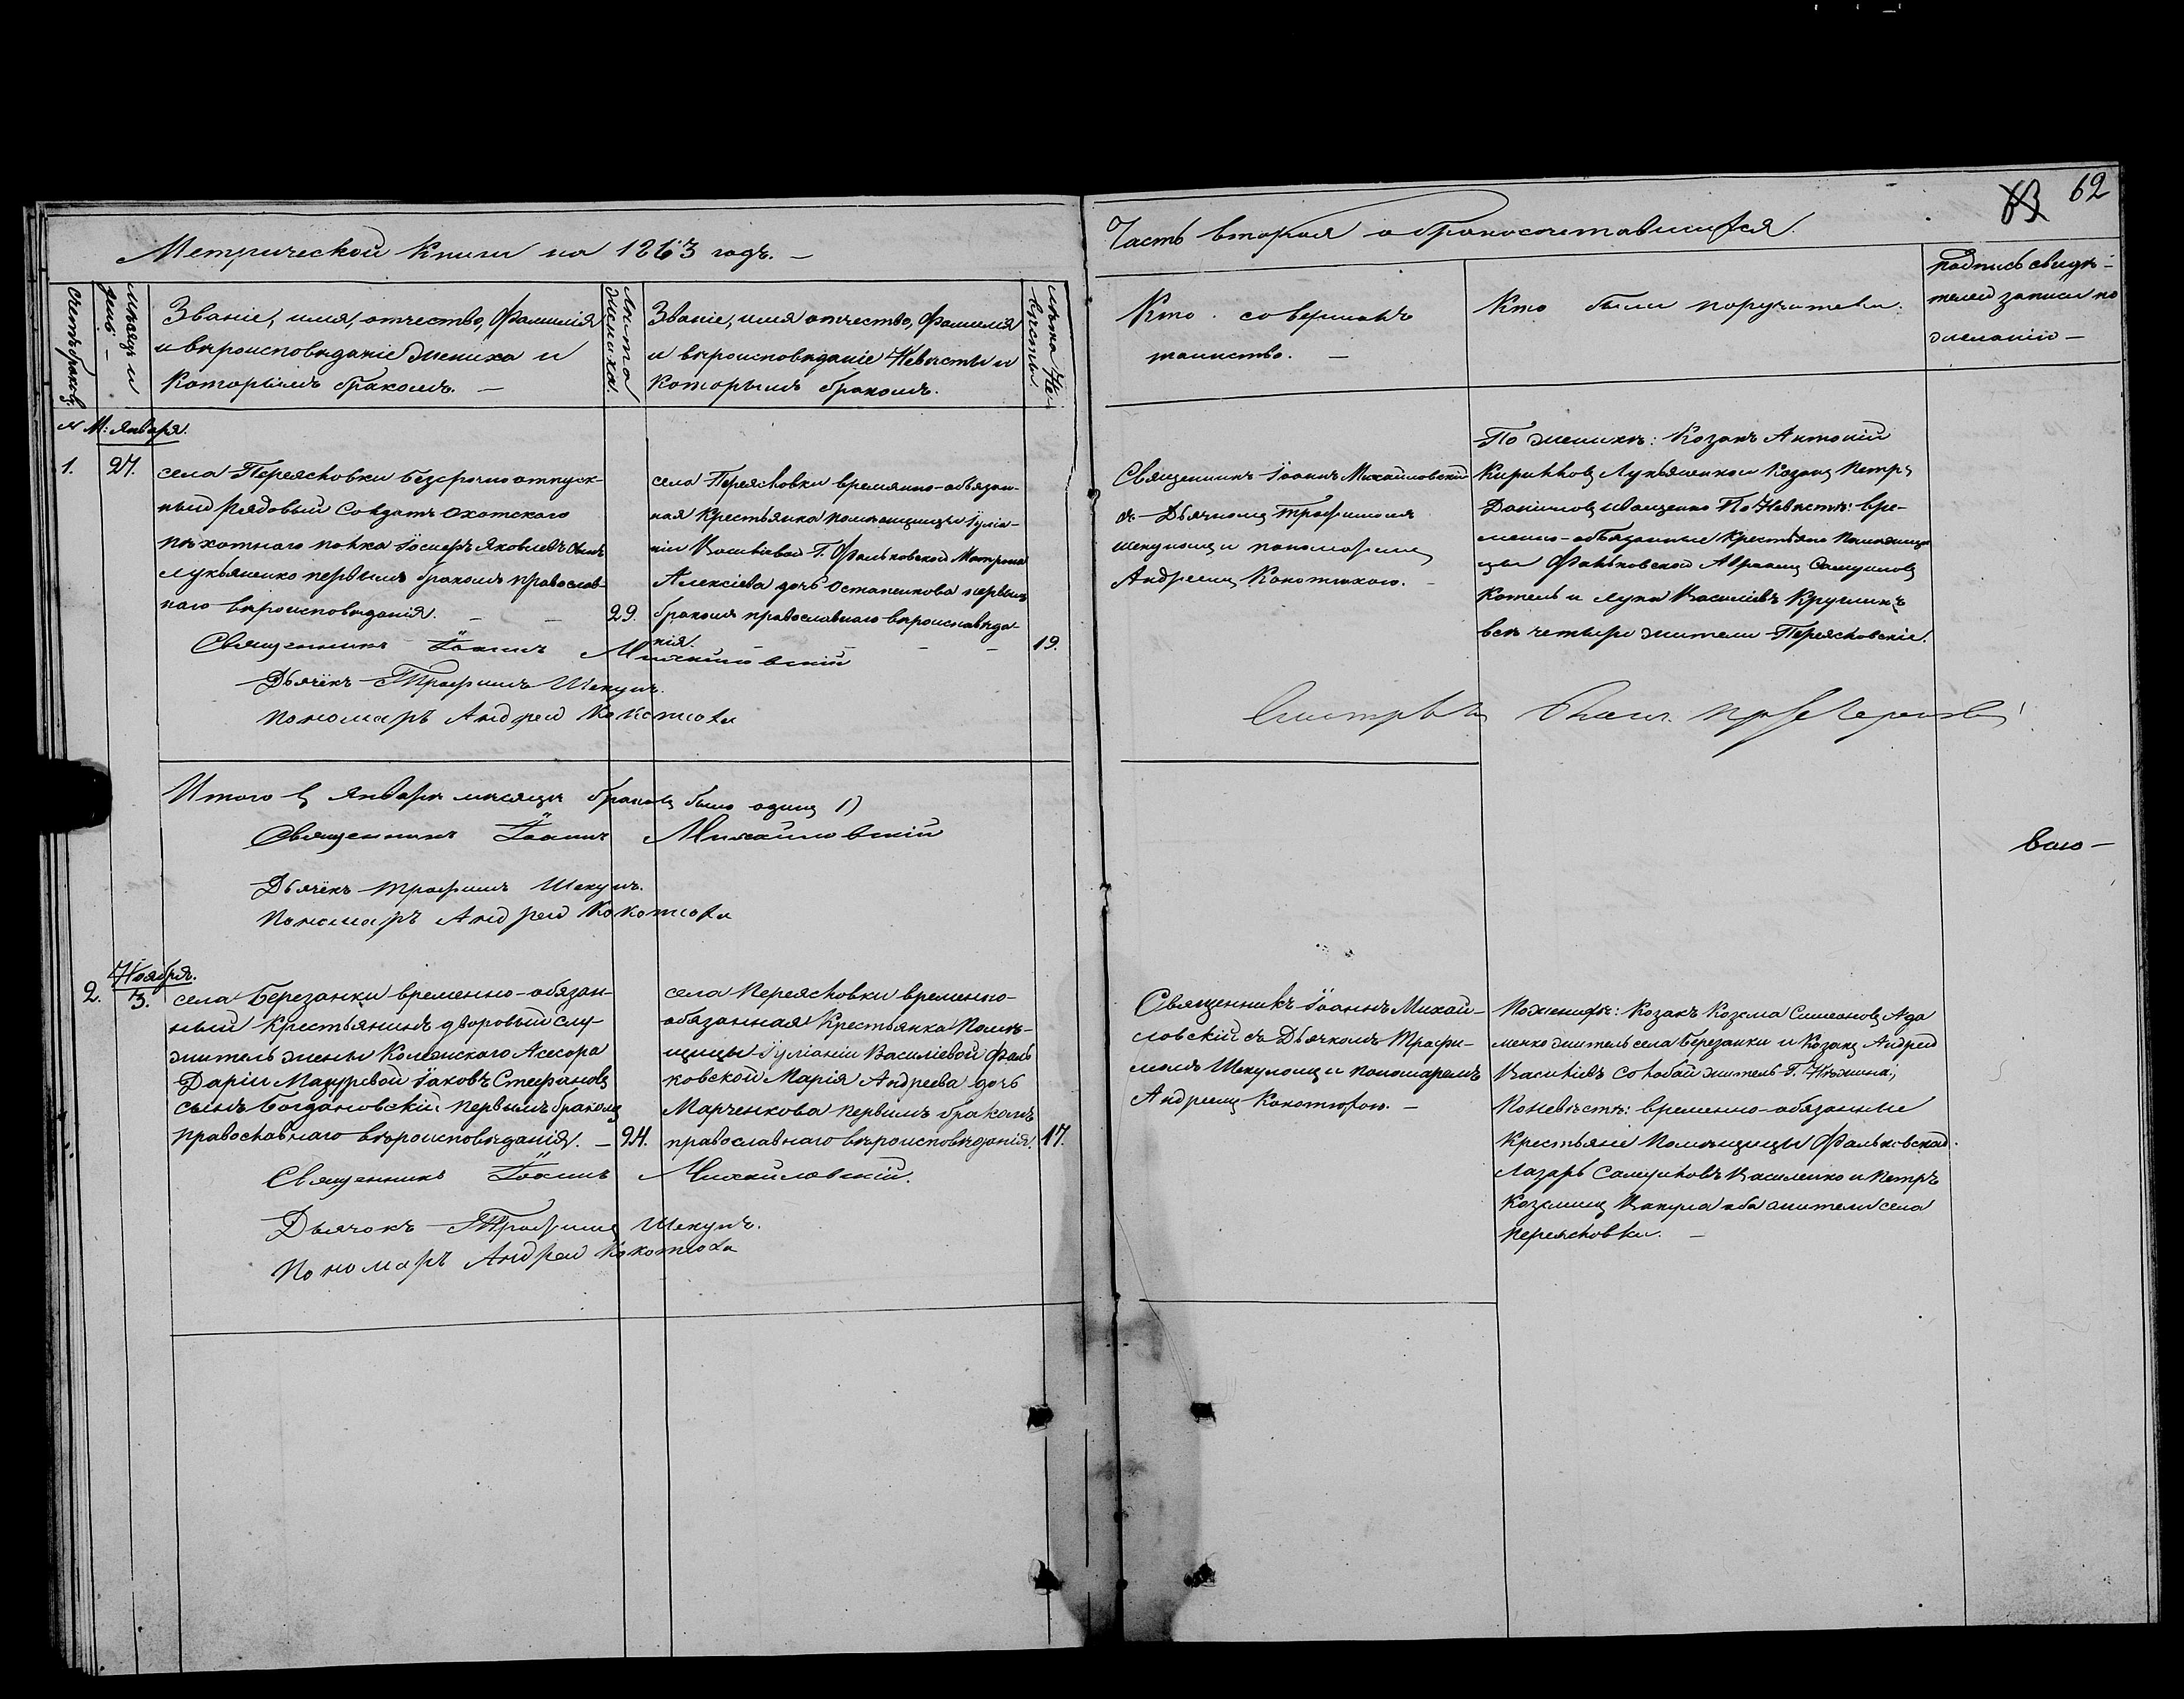 62
Метрической Книги на 1863 годъ. —
Часть вторая о бракосочетавшихся.
Счетъ браковъ.
Мѣсяцъ и
день —
Званіе, имя, отчество, Фамилія
и вѣроисповѣданіе жениха и
Которымъ бракомъ. —
Лѣта
жениха.
Званіе, имя отчество, Фамилія
и вѣроисповѣданіе Невѣсты и
Которымъ бракомъ.
Лѣта Не-
вѣсты.
Кто совершалъ
таинство. —
Кто были поручители.
Подпись свидѣ-
телей записи по
желанію —
М: Января.
1.
27.
села Переясловки безсрочно отпуск-
ный Рядовый Солдатъ Охотского
пѣхотнаго полка Іосифъ Яковлевъ сынъ
Лукьяненко первымъ бракомъ православ-
наго вѣроисповѣданія. — —
29.
села Переясловки временно-обязан-
ная Крестьянка помѣщицы Іуліа-
ніи Васильевой Г. Фальковской Матрона
Алексіева дочь Остапенкова первымъ
бракомъ православнаго вѣроисповѣда-
нія. — — — —
19.
Священникъ Іоаннъ Михайловскій
съ Дьячкомъ Трофимомъ
Шекуномъ и пономаремъ
Андреемъ Кокотюхою. —
По женихѣ: Козакъ Антоній
Кириловъ Лукьяненко и Козакъ Петръ
Даниловъ Иващенко По Невѣстѣ: вре-
менно-обязанные Крестьяне Помѣщи
цы Фальковской Авраамъ Самуиловъ
Котель и Лука Василіевъ Кругликъ
всѣ четыре жители Переясловскіе.
Священникъ Іоаннъ Михайловскій
Дьячёкъ Трофимъ Шекунъ.
Пономаръ Андрей Кокотюха
Итого въ Январѣ мѣсяцѣ браковъ было одинъ 1)
Священникъ Іоаннъ Михайловскій
Дьячёкъ Трофимъ Шекунъ.
Пономаръ Андрей Кокотюха
Ноября.
2.
3.
села Березанки временно-обязан-
ный Крестьянинъ дворовый слу-
житель жены Колежского Асесора
Даріи Мазуревой Іаковъ Стефановъ
сынъ Богдановскій первымъ бракомъ
православнаго вѣроисповѣданія. —
24.
села Переясловки временно-
обязанная Крестьянка Помѣ-
щицы Іуліаніи Василіевой Фаль
ковской Марія Андреева дочь
Марченкова первымъ бракомъ
православнаго вѣроисповѣданія.
17.
Священникъ Іоаннъ Михай-
ловскій съ Дьячкомъ Трофи-
момъ Шекуномъ и пономаремъ
Андреемъ Кокотюхою. —
По женихѣ: Козакъ Козьма Симеоновъ Ада
менко житель села Березанки и Козакъ Андрей
Василіевъ житель Г. Нѣжина;
По невѣстѣ: временно-обязанные
Крестьяне Помѣщицы Фальковской
Лазарь Самуиловъ Василенко и Петръ
Козминъ Вакула оба жители села
Переясловки. —
Священникъ Іоаннъ Михайловскій.
Дьячокъ Трофимъ Шекунъ.
Пономаръ Андрей Кокотюха